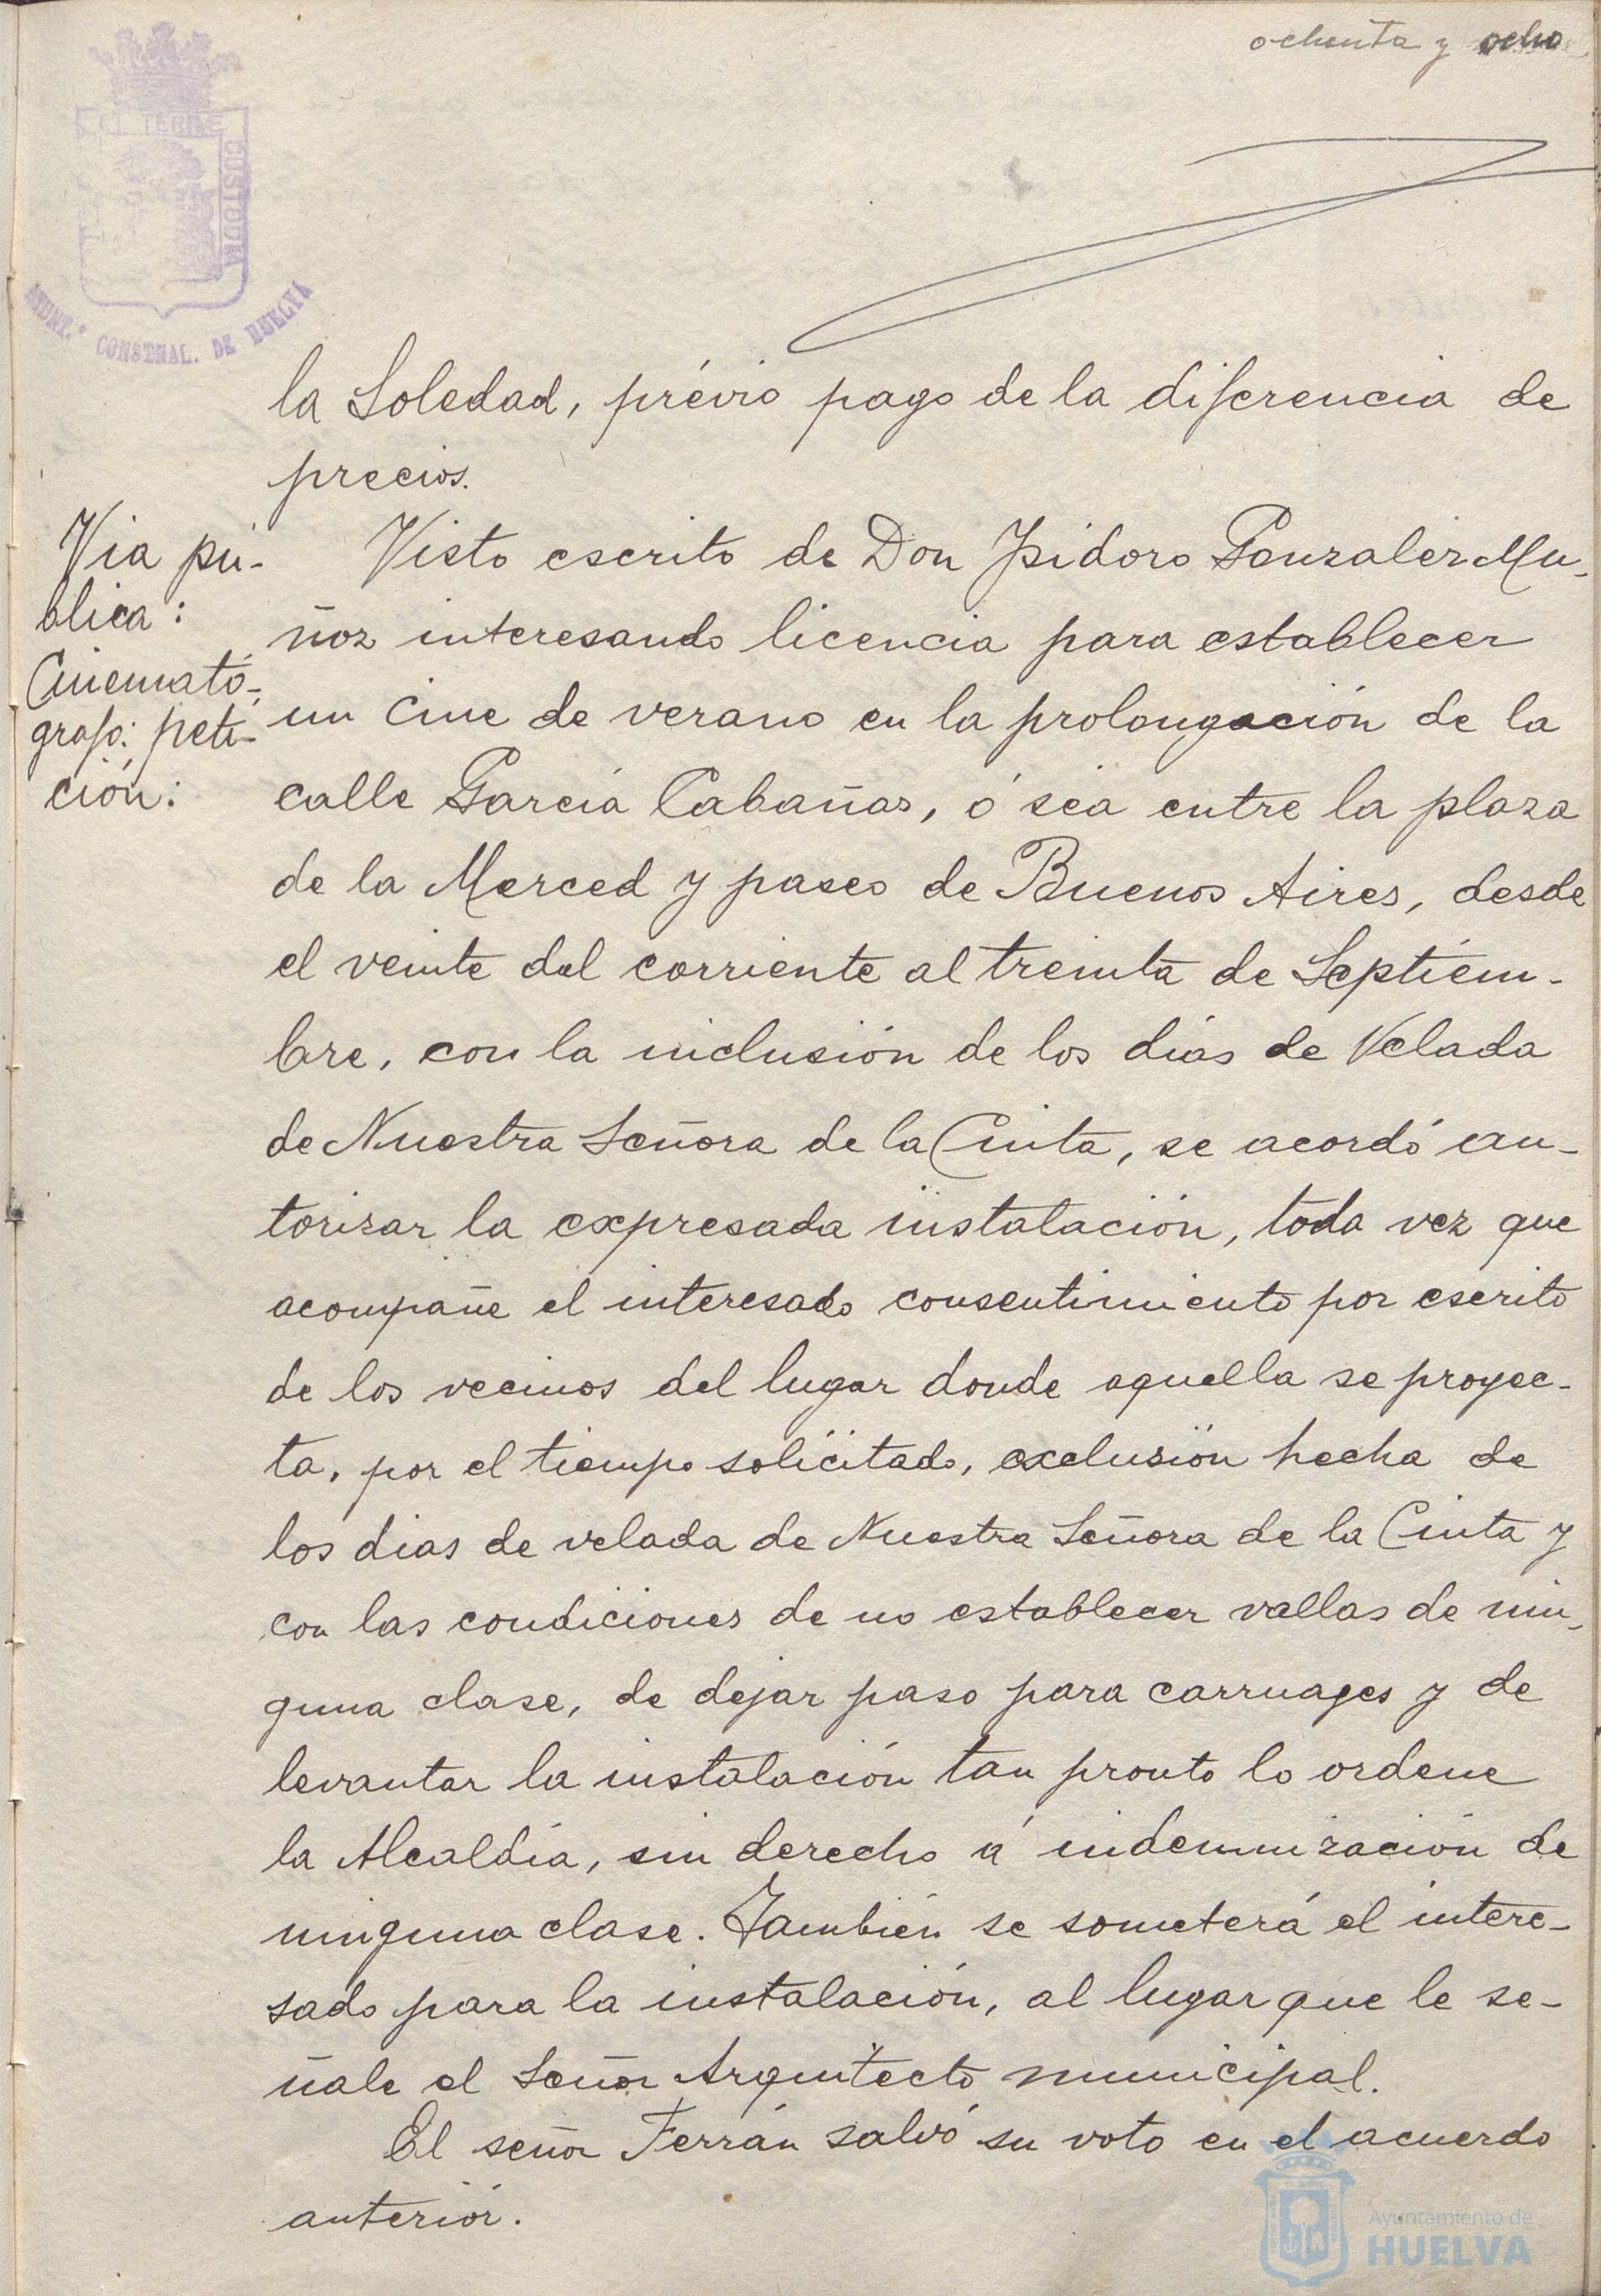 ochenta y ocho
TERRAE
CUSTODIA
AYUNT.º CONSTNAL. DE HUELVA
la Soledad, prévio pago de la diferencia de
precios.
Via pú-
blica:
Cinemató-
grafo: peti-
ción:
Visto escrito de Don Ysidoro Gonzalez Mu-
ñoz interesando licencia para establecer
un cine de verano en la prolongación de la
calle García Cabañas, ó sea entre la plaza
de la Merced y paseo de Buenos Aires, desde
el veinte del corriente al treinta de Septiem-
bre, con la inclusión de los dias de Velada
de Nuestra Señora de la Cinta, se acordó au-
torizar la expresada instalación, toda vez que
acompañe el interesado consentimiento por escrito
de los vecinos del lugar donde aquella se proyec-
ta, por el tiempo solicitado, exclusión hecha de
los dias de velada de Nuestra Señora de la Cinta y
con las condiciones de no establecer vallas de nin-
guna clase, de dejar paso para carruages y de
levantar la instalación tan pronto lo ordene
la Alcaldía, sin derecho á indemnización de
ninguna clase. También se someterá el intere-
sado para la instalación, al lugar que le se-
ñale el Señor Arquitecto municipal.
El señor Ferrán salvó su voto en el acuerdo
anterior.
Ayuntamiento de
HUELVA